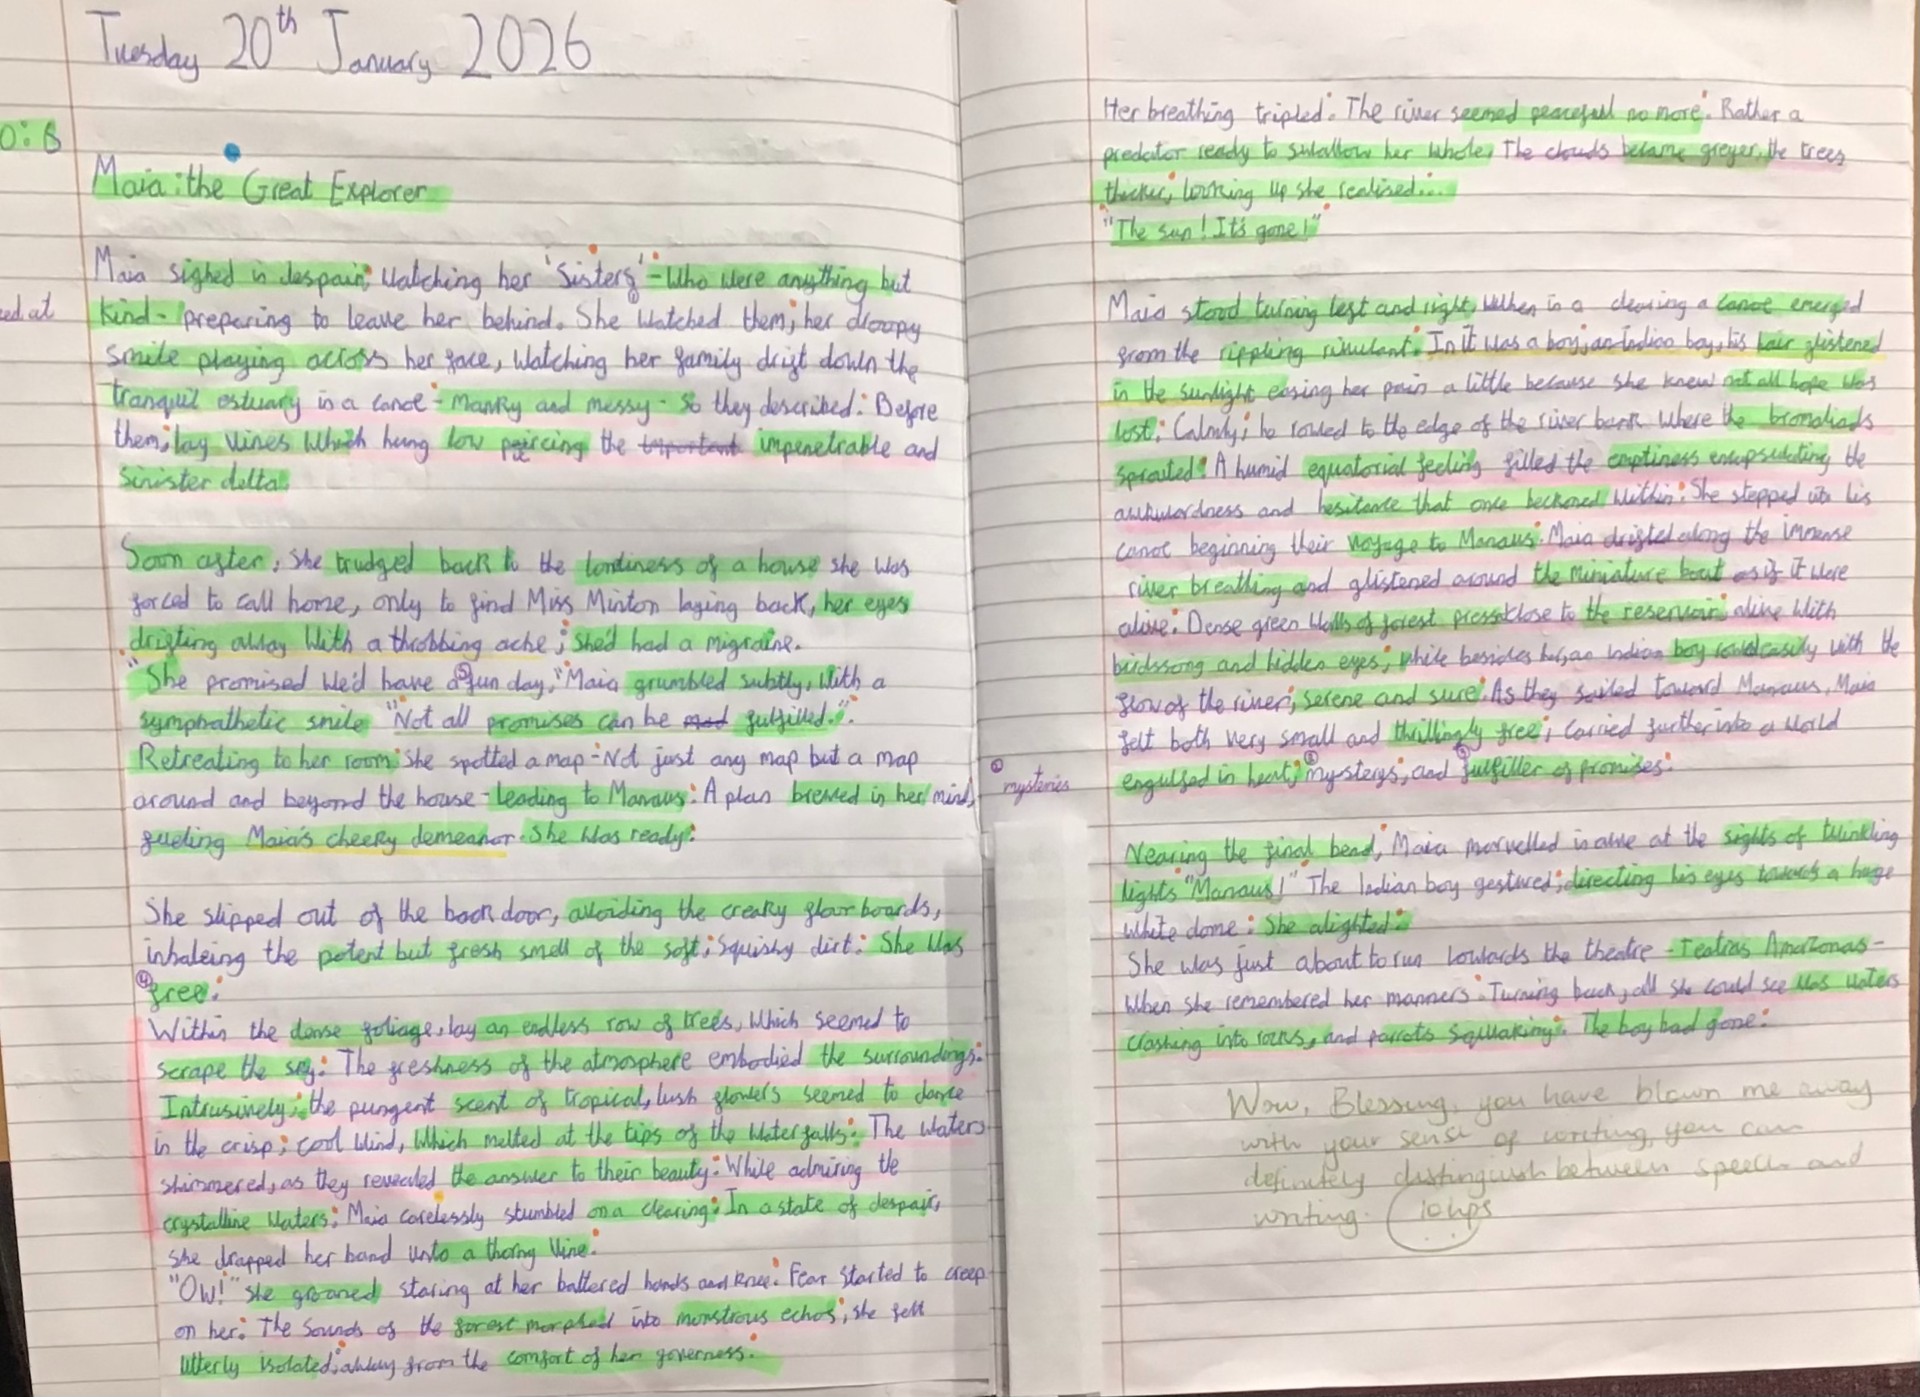 Tuesday 20th January 2026
O: B
Maia: the Great Explorer
Maia sighed in despair, watching her 'sisters' - who were anything but
ed at
kind - preparing to leave her behind. She watched them; her droopy
smile playing across her face, watching her family drift down the
tranquil estuary in a canoe - manky and messy - so they described. Before
them, lay vines which hung low piercing the important impenetrable and
sinister delta.
Soon after, she trudged back to the lonliness of a house she was
forced to call home, only to find Miss Minton laying back, her eyes
drifting away with a throbbing ache; she'd had a migraine.
"She promised we'd have a fun day," Maia grumbled subtly, with a
symphathetic smile "Not all promises can be mad fulfilled.".
Retreating to her room she spotted a map - Not just any map but a map
around and beyond the house - leading to Manaus. A plan brewed in her mind,
fueling Maia's cheeky demeanor. She was ready.
She slipped out of the back door, avoiding the creaky floor boards,
inhaleing the potent but fresh smell of the soft, squishy dirt. She was
④ free.
Within the dense foliage, lay an endless row of trees, which seemed to
scrape the sky. The freshness of the atmosphere embodied the surroundings.
Intrusively, the pungent scent of tropical, lush flowers seemed to dance
in the crisp, cool wind, which melted at the tips of the waterfalls. The waters
shimmered, as they revealed the answer to their beauty. While admiring the
crystalline waters, Maia carelessly stumbled on a clearing. In a state of despair,
she drapped her hand unto a thorny vine.
"Ow!" she groaned staring at her battered hands and knee. Fear started to creep
on her. The sounds of the forest morphed into monstrous echos; she felt
utterly isolated; away from the comfort of her governess.
Her breathing tripled. The river seemed peacefull no more. Rather a
predator ready to swallow her whole. The clouds became greyer, the trees
thicker, looking up she realised...
"The sun! It's gone!"
Maia stood turning left and right, when in a clearing a canoe emerged
from the rippling rivulant. In it was a boy, an Indian boy, his hair glistened
in the sunlight easing her pain a little because she knew not all hope was
lost. Calmly, he rowed to the edge of the river bank where the bromoliads
sprouted. A humid equatorial feeling filled the emptiness encapsulating the
awkwardness and hesitance that once beckoned within. She stepped into his
canoe beginning their voyage to Manaus. Maia drifted along the immense
river breathing and glistened around the miniature boat as if it were
alive. Dense green walls of forest press close to the reservoir, alive with
birdssong and hidden eyes, while besides her, an Indian boy rowed easily with the
flow of the river, serene and sure. As they sailed toward Manaus, Maia
felt both very small and thrillingly free, carried further into a world
engulfed in heat, mysterys, and fulfiller of promises.
mysteries
Nearing the final bend, Maia marvelled in awe at the sights of twinkling
lights "Manaus!" The Indian boy gestured, directing his eyes towards a huge
white dome. She alighted.
She was just about to run towards the theatre - Teatras Amazonas -
when she remembered her manners. Turning back, all she could see was waters
crashing into rocks, and parrots squwaking. The boy had gone.
Wow, Blessing, you have blown me away
with your sense of writing, you can
definitely distinguish between speech and
writing. 10 hps